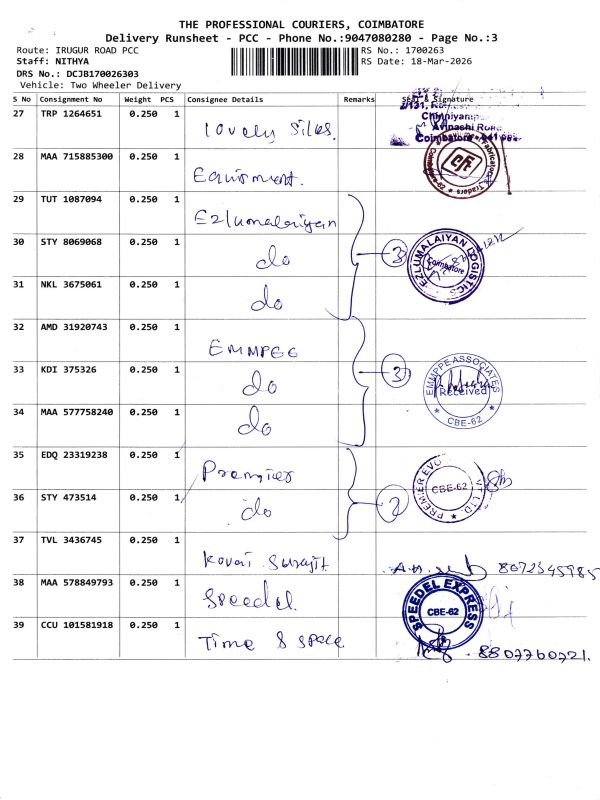 THE PROFESSIONAL COURIERS, COIMBATORE
Delivery Runsheet - PCC - Phone No.:9047080280 - Page No.:3
Route: IRUGUR ROAD PCC RS No.: 1700263
Staff: NITHYA RS Date: 18-Mar-2026
DRS No.: DCJB170026303
Vehicle: Two Wheeler Delivery
S No Consignment No Weight PCS Consignee Details Remarks Seal & Signature
27 TRP 1264651 0.250 1 Lovely Silks.
Chinniyam
Avinashi Road
Coimbatore
28 MAA 715885300 0.250 1 Equipment.
CFE
29 TUT 1087094 0.250 1 Ezlumalaiyan
30 STY 8069068 0.250 1 do 3
EZLUMALAIYAN LOGISTICS
Coimbatore
31 NKL 3675061 0.250 1 do
32 AMD 31920743 0.250 1 EMMPEE
33 KDI 375326 0.250 1 do 3
EMMPPE ASSOCIATES
Received
CBE-62
34 MAA 577758240 0.250 1 do
35 EDQ 23319238 0.250 1 Premier
PREMIER EVO VT LTD.
CBE-62
36 STY 473514 0.250 1 do 2
37 TVL 3436745 0.250 1 Kovai Surajit 8072345985
38 MAA 578849793 0.250 1 Speedel.
SPEEDEL EXPRESS
CBE-62
39 CCU 101581918 0.250 1 Time & space 8807760721.